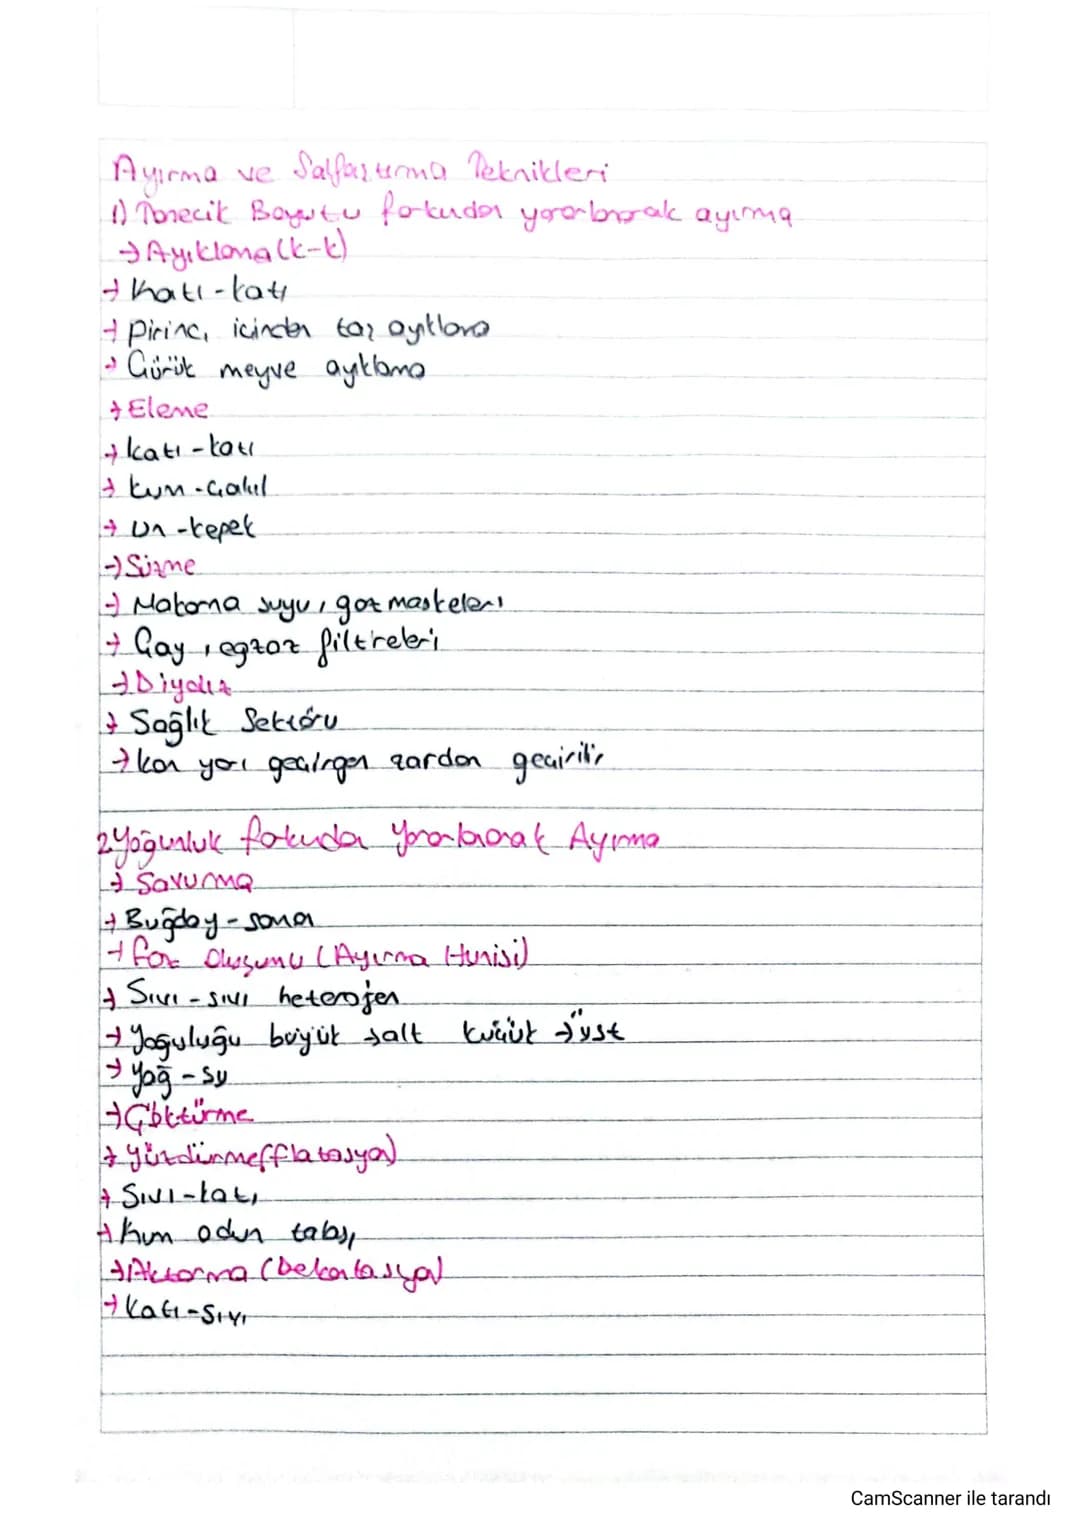 Ayırma ve Saflaştırma Teknikleri
1) Tanecik Boyutu farkından yararlanarak ayırma
→ Ayıklama (k-k)
→ Katı - katı
→ Pirinç içinden taş ayıklama
→ Çürük meyve ayıklama
→ Eleme
→ Katı - katı
→ Kum - Çakıl
→ Un - kepek
→ Süzme
→ Makarna suyu, gaz maskeleri
→ Çay, egzoz filtreleri
→ Diyaliz
→ Sağlık Sektörü
→ kan yarı geçirgen zardan geçirilir
2. Yoğunluk farkından Yararlanarak Ayırma
→ Savurma
→ Buğday - saman
→ Faz Oluşumu (Ayırma Hunisi)
→ Sıvı - sıvı heterojen
→ Yoğuluğu büyük → alt küçük → üst
→ Yağ - su
→ Çöktürme
→ Yüzdürme (fflatasyon)
→ Sıvı - katı
→ Kum odun talaşı
→ Aktarma (Dekantasyon)
→ Katı - sıvı
CamScanner ile tarandı